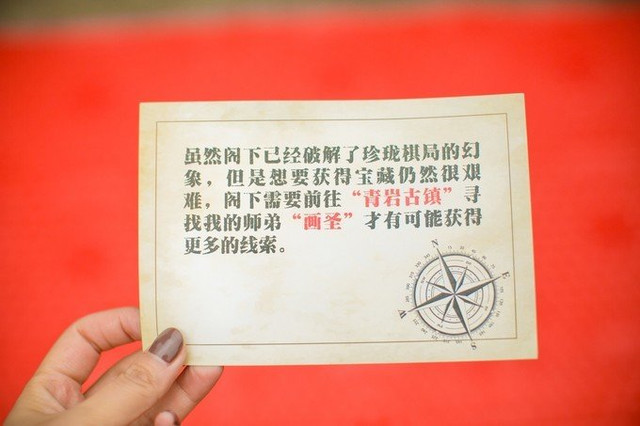 虽然阁下已经破解了珍珑棋局的幻
象，但是想要获得宝藏仍然很艰
难，阁下需要前往“青岩古镇”寻
找我的师弟“画圣”才有可能获得
更多的线索。
N
E
W
S